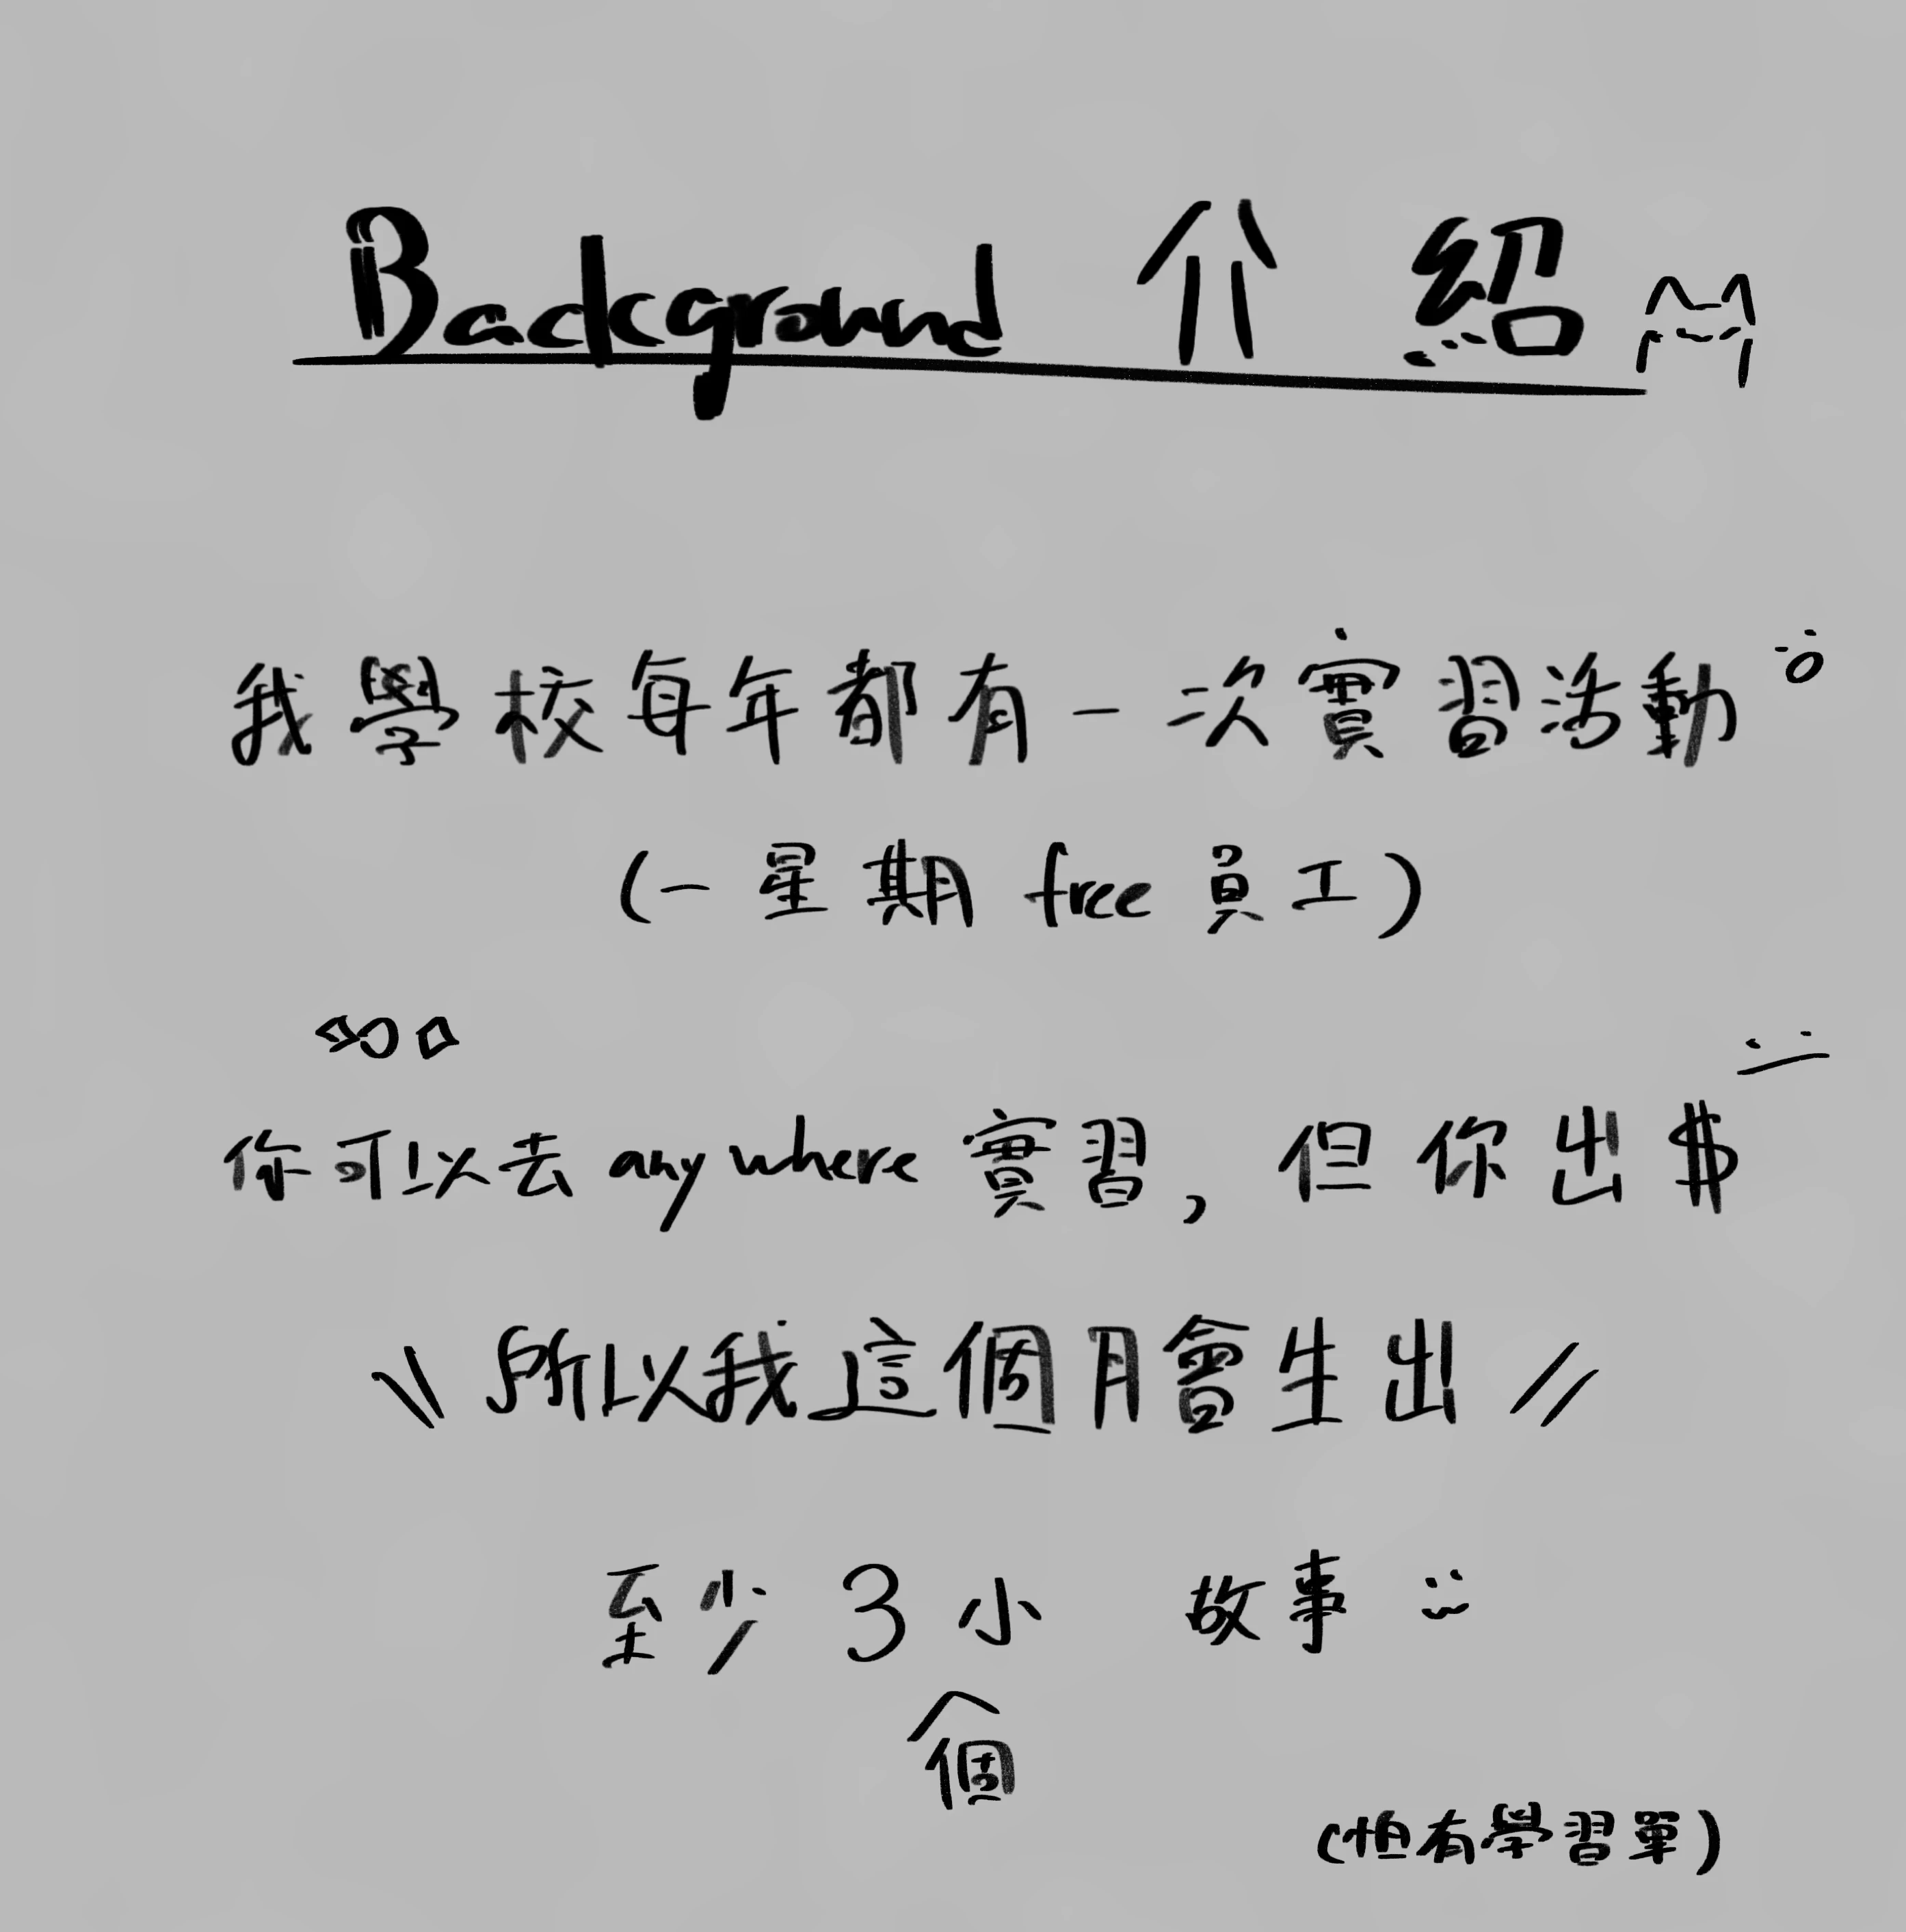 Background 介紹
我學校每年都有一次實習活動
(一星期 free 員工)
你可以去 anywhere 實習, 但你出$
\\ 所以我這個月會生出 //
至少 3 個小故事
(但有學習單)